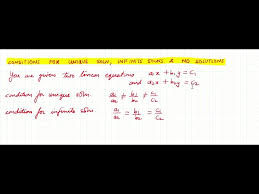 CONDITIONS FOR UNIQUE SOLN, INFINITE SOLNS & NO SOLUTIONS
You are given two linear equations a₁x + b₁y = C₁
and a₂x + b₂y = C₂
condition for unique soln. a₁/a₂ ≠ b₁/b₂ ≠ C₁/C₂
condition for infinite solns. a₁/a₂ = b₁/b₂ = C₁/C₂